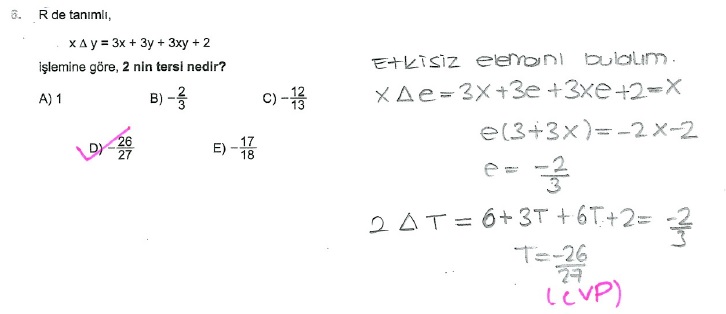 6. R de tanımlı,
x Δ y = 3x + 3y + 3xy + 2
işlemine göre, 2 nin tersi nedir?
A) 1 B) -2/3 C) -12/13
D) -26/27 E) -17/18
Etkisiz elemanı bulalım.
x Δ e = 3x + 3e + 3xe + 2 = x
e(3+3x) = -2x-2
e = -2/3
2 Δ T = 6 + 3T + 6T + 2 = -2/3
T = -26/27
(CVP)